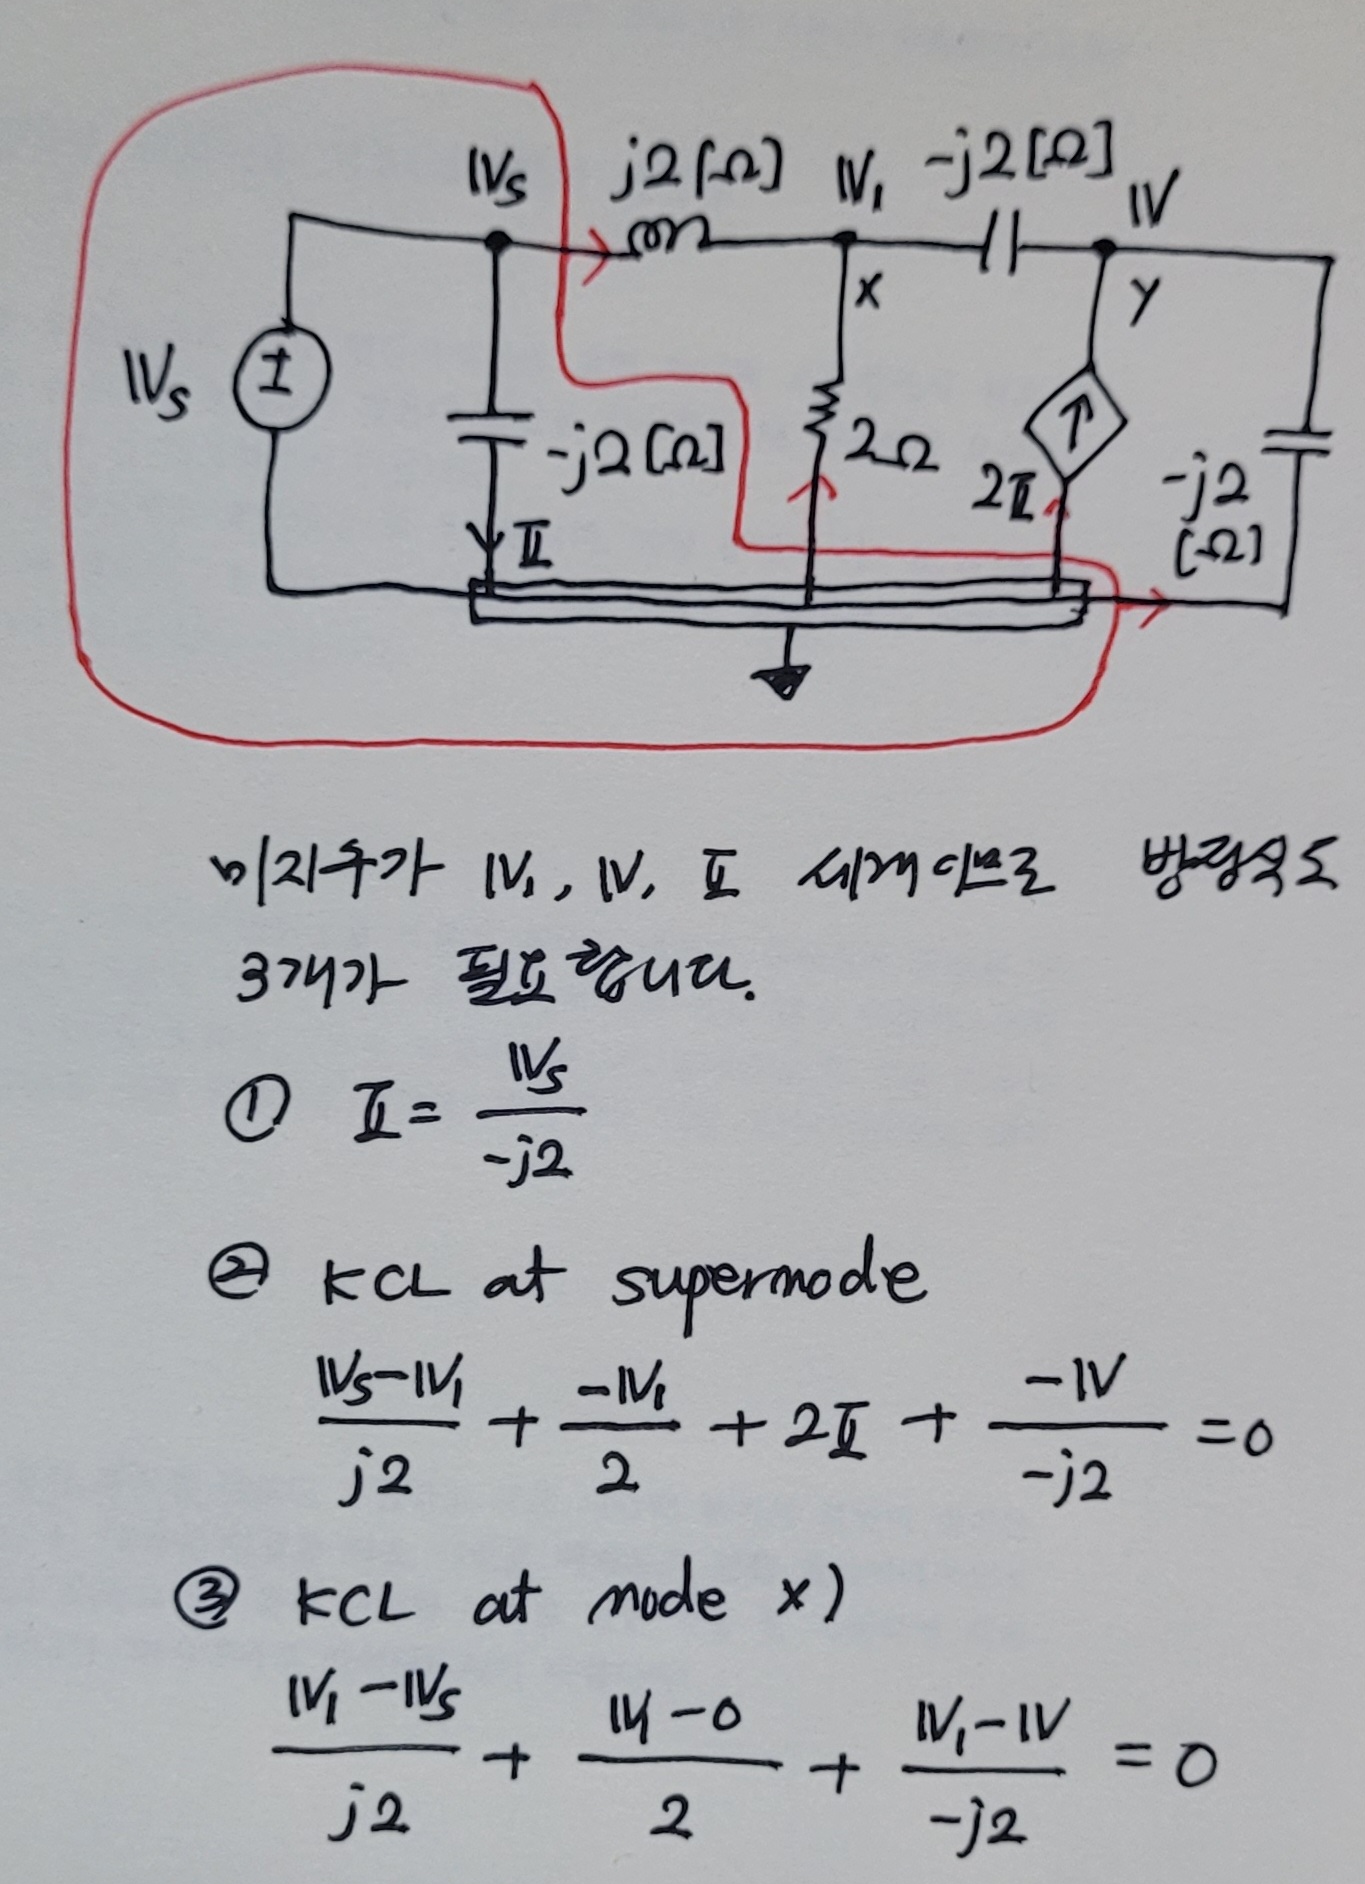 𝕍s j2[Ω] 𝕍₁ -j2[Ω] 𝕍
x y
𝕍s ± -j2[Ω] 2Ω 2𝕀 ↑ -j2
[Ω]
𝕀
미지수가 𝕍₁, 𝕍, 𝕀 세개이므로 방정식도
3개가 필요합니다.
① 𝕀 = 𝕍s / -j2
② KCL at supernode
(𝕍s-𝕍₁) / j2 + (-𝕍₁) / 2 + 2𝕀 + (-𝕍) / -j2 = 0
③ KCL at node x)
(𝕍₁-𝕍s) / j2 + (𝕍₁-0) / 2 + (𝕍₁-𝕍) / -j2 = 0